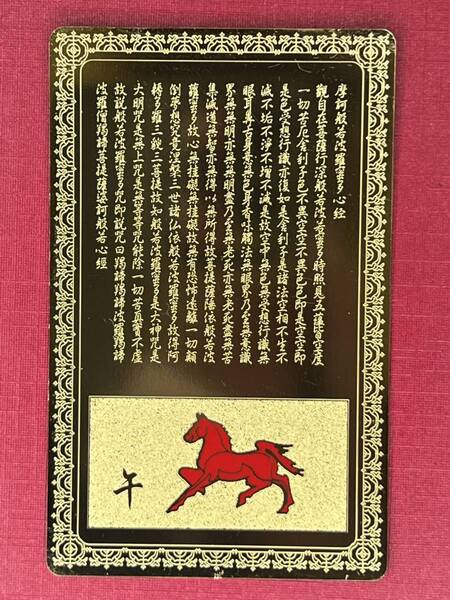 摩訶般若波羅蜜多心經
觀自在菩薩行深般若波羅蜜多時照見五蘊皆空度
一切苦厄舍利子色不異空空不異色色即是空空即
是色受想行識亦復如是舍利子是諸法空相不生不
滅不垢不淨不增不減是故空中無色無受想行識無
眼耳鼻舌身意無色聲香味觸法無眼界乃至無意識
界無無明亦無無明盡乃至無老死亦無老死盡無苦
集滅道無智亦無得以無所得故菩提薩埵依般若波
羅蜜多故心無罣礙無罣礙故無有恐怖遠離一切顛
倒夢想究竟涅槃三世諸佛依般若波羅蜜多故得阿
耨多羅三藐三菩提故知般若波羅蜜多是大神咒是
大明咒是無上咒是無等等咒能除一切苦真實不虛
故說般若波羅蜜多咒即說咒曰羯諦羯諦波羅羯諦
波羅僧羯諦菩提薩婆訶般若心經
午